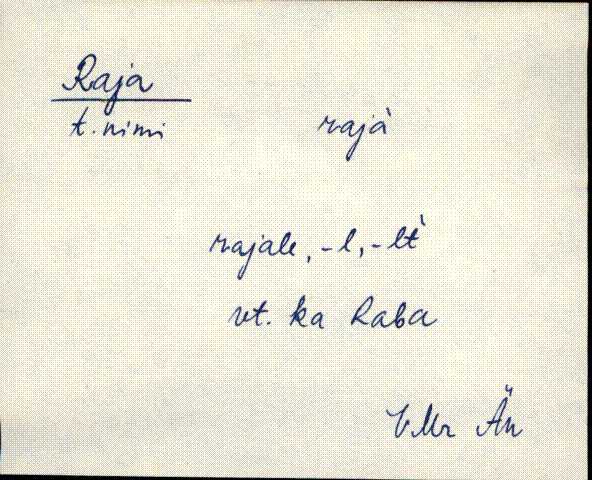 Raja
t. nimi rajà
rajale, -l, -lt̀
vt. ka Raba
VMr Än